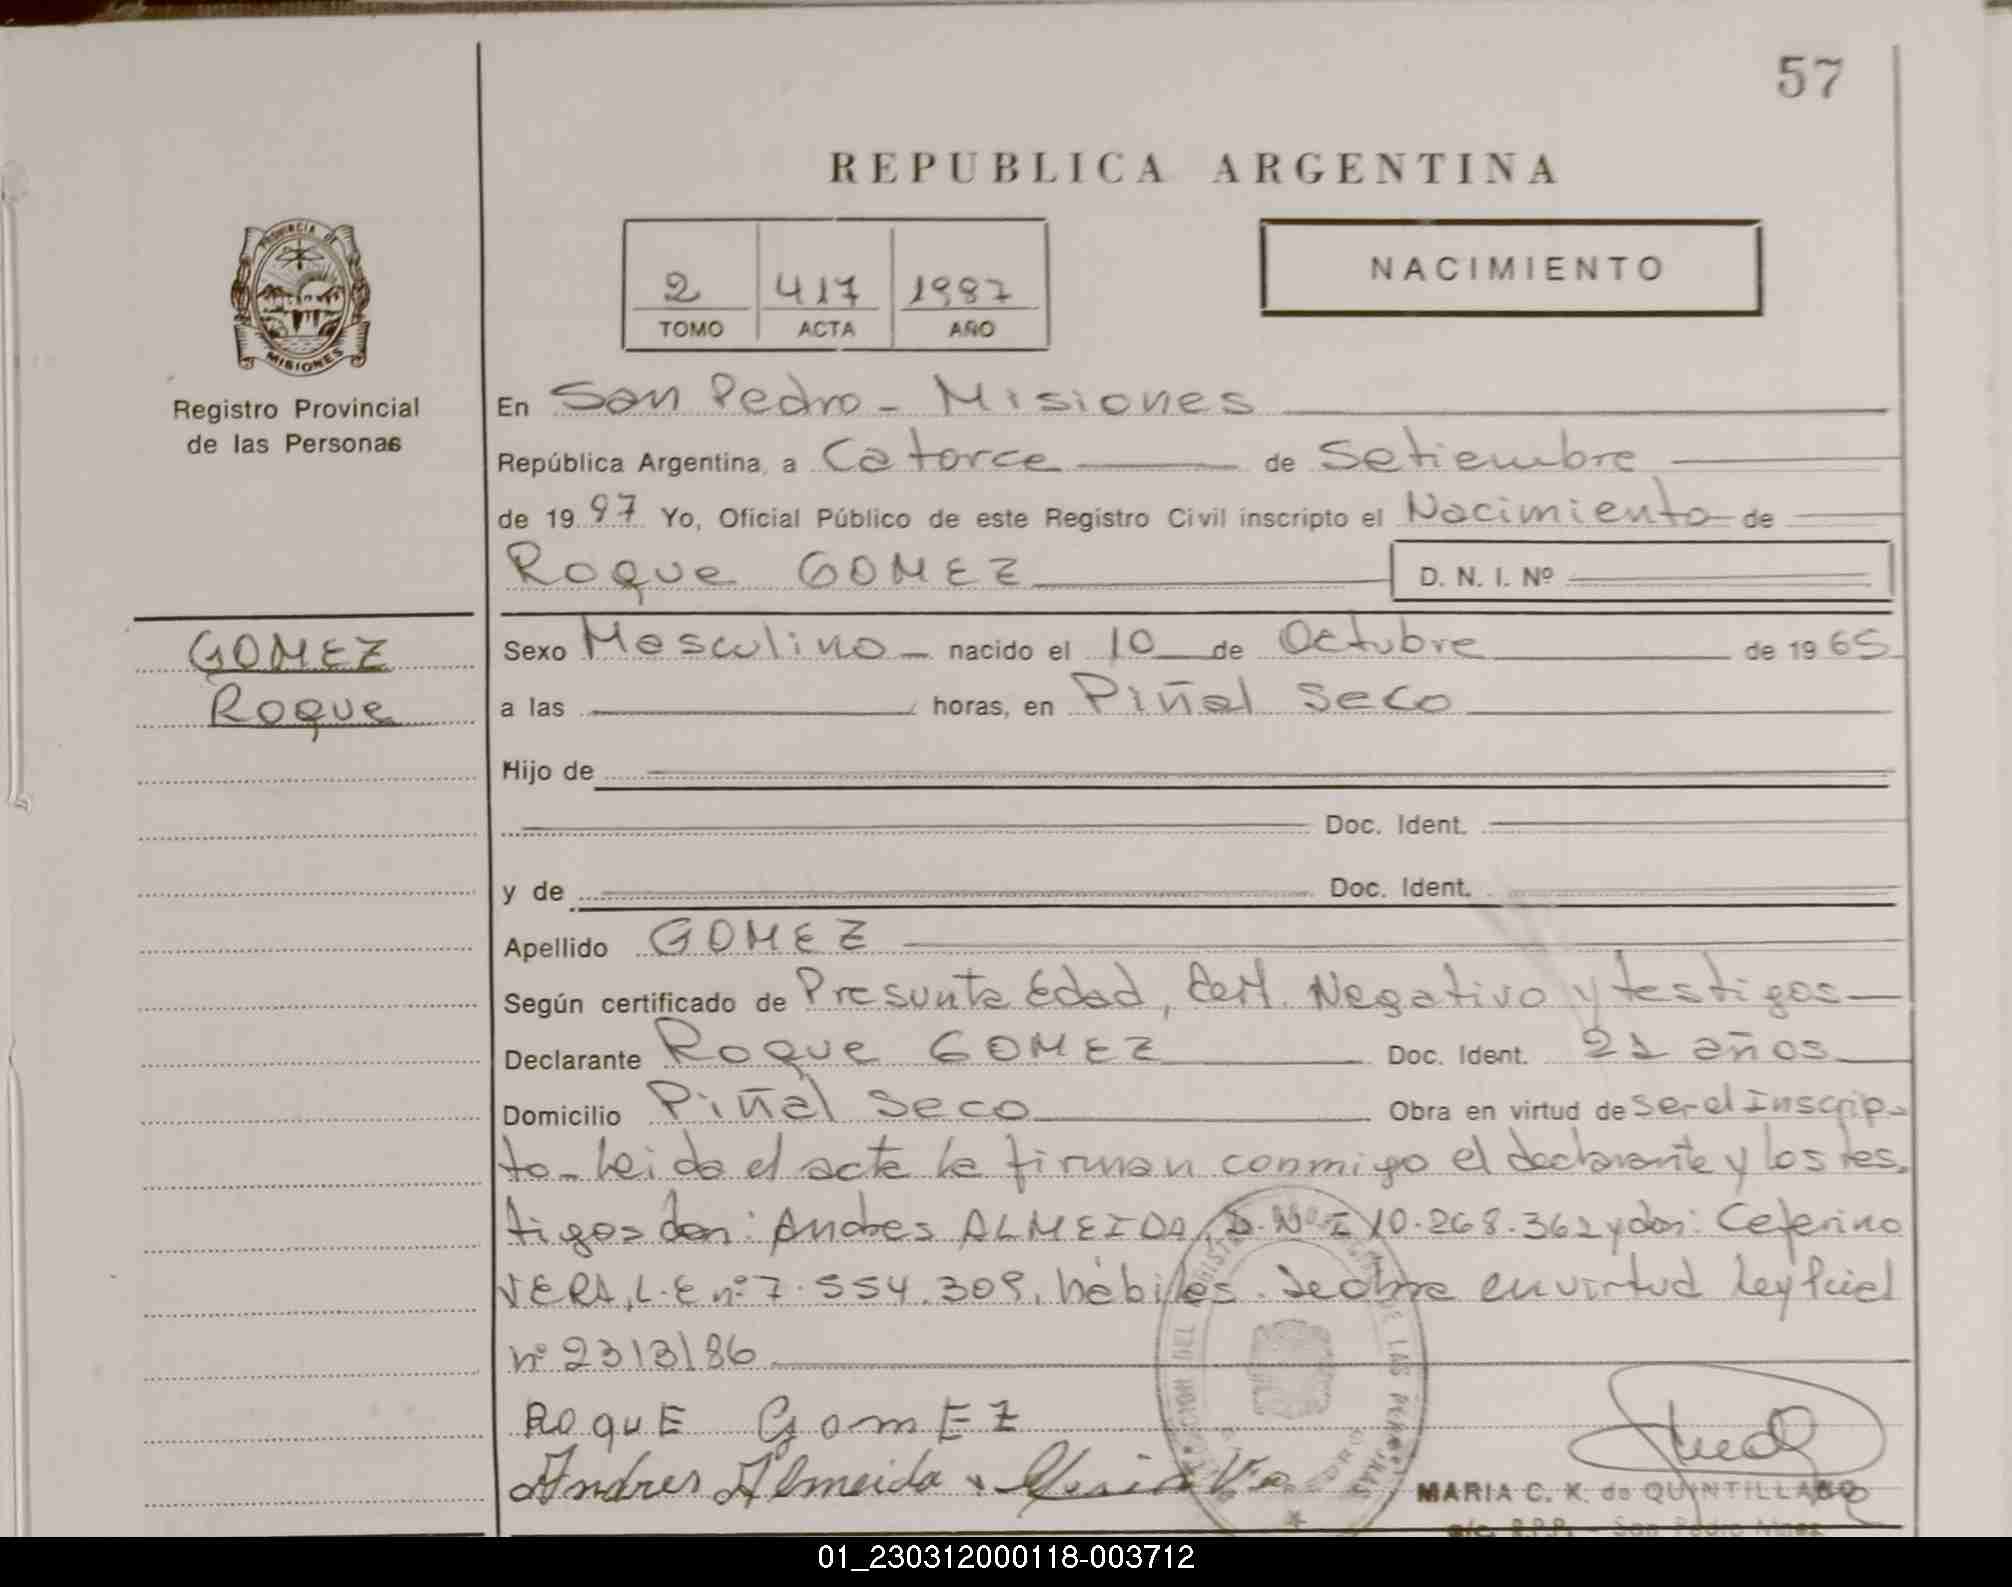 57
REPUBLICA ARGENTINA
PROVINCIA DE
MISIONES
2 417 1987
TOMO ACTA AÑO
NACIMIENTO
Registro Provincial
de las Personas
En San Pedro - Misiones
República Argentina, a Catorce de Setiembre
de 1987 Yo, Oficial Público de este Registro Civil inscripto el Nacimiento de
Roque GOMEZ D. N. I. Nº
GOMEZ
Roque
Sexo Masculino nacido el 10 de Octubre de 1965
a las horas, en Piñal Seco
Hijo de
Doc. Ident.
y de Doc. Ident.
Apellido GOMEZ
Según certificado de Presunta Edad, Cert. Negativo y testigos
Declarante Roque GOMEZ Doc. Ident. 21 años
Domicilio Piñal Seco Obra en virtud de ser el Inscrip-
to - Leida el acta la firman conmigo el declarante y los tes-
tigos don: Andres ALMEIDA, D.N.I 10.268.362 y don: Ceferino
VERA, L.E nº 7.554.309, hábiles. Se obra en virtud Ley
nº 2313/86
RoquE GomEZ
Andres Almeida
MARIA C. K. de QUINTILLAN
01_230312000118-003712